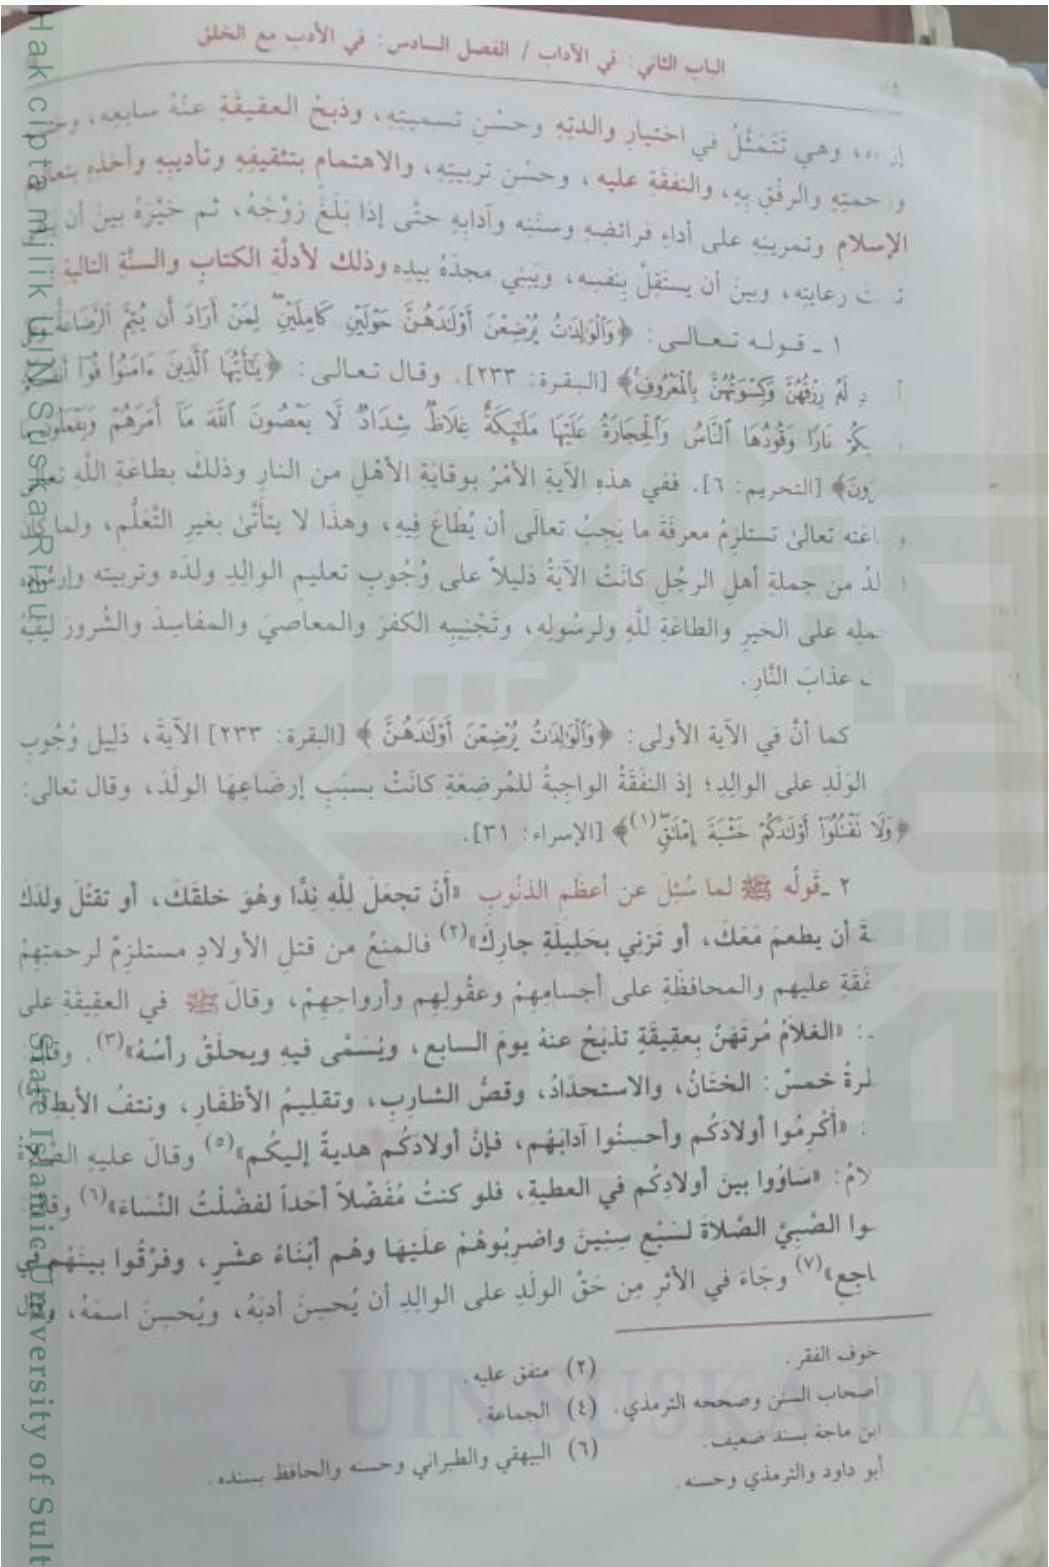 الباب الثاني: في الآداب / الفصل السادس: في الأدب مع الخلق
وهي تَتَمَثَّلُ في اختيارِ والدتِهِ وحسْنِ تسميتِهِ، وذبحْ العقيقَةِ عنْهُ سابِعِه،
والرفْقِ بِهِ، والنفقَةِ عليه، وحسْن تربيتِهِ، والاهتمامِ بتثقيفِهِ وتأديبِهِ وأخذِهِ بتعاليم
الإسلامِ وتمرينِهِ على أداءِ فرائضهِ وسننِه وآدابِهِ حتَّى إذَا بَلَغَ زوَّجَهُ، ثم خيَّرَهُ بينَ أن
رعايتِه، وبينَ أن يستَقِلَّ بِنفسِه، ويَبني مجدَهُ بيدِه وذلك لأدلَّةِ الكتابِ والسنَّةِ التاليةِ
١ ـ قـولـه تـعـالـى: ﴿وَٱلْوَٰلِدَٰتُ يُرْضِعْنَ أَوْلَٰدَهُنَّ حَوْلَيْنِ كَامِلَيْنِ لِمَنْ أَرَادَ أَن يُتِمَّ ٱلرَّضَاعَةَ
لَهُ رِزْقُهُنَّ وَكِسْوَتُهُنَّ بِٱلْمَعْرُوفِ﴾ [البـقـرة: ٢٣٣]. وقـال تـعـالـى: ﴿يَٰٓأَيُّهَا ٱلَّذِينَ ءَامَنُوا۟ قُوٓا۟
نَارًا وَقُودُهَا ٱلنَّاسُ وَٱلْحِجَارَةُ عَلَيْهَا مَلَٰٓئِكَةٌ غِلَاظٌ شِدَادٌ لَّا يَعْصُونَ ٱللَّهَ مَآ أَمَرَهُمْ وَيَفْعَلُونَ
[التحريم: ٦]. ففي هذهِ الآيةِ الأمْرُ بوقايَةِ الأهْلِ من النارِ وذلكَ بطاعَةِ اللَّهِ تعالَى
تعالىٰ تستلزِمُ معرفَةَ ما يَجِبُ تعالَى أن يُطَاعَ فِيهِ، وهذَا لا يتأتَّىٰ بغيرِ التَّعَلُّمِ، ولما كان
من جملةِ أهلِ الرجُلِ كانَتْ الآيَةُ دَليلاً على وُجُوبِ تعليمِ الوالِدِ ولدَه وتربيته وإرشاده
على الخيرِ والطاعَةِ للَّهِ ولرسُولِه، وتَجْنيبِه الكفرَ والمعاصيَ والمفاسِدَ والشُّرورَ ليَقيَهُ
عذابَ النَّارِ.
كما أنَّ في الآية الأولى: ﴿وَٱلْوَٰلِدَٰتُ يُرْضِعْنَ أَوْلَٰدَهُنَّ﴾ [البقرة: ٢٣٣] الآيةَ، دَلِيل وُجُوبِ
الوَلَدِ على الوالِدِ؛ إذ النفَقَةُ الواجِبةُ للمُرضِعَةِ كانَتْ بسبَبِ إرضَاعِهَا الولَدَ، وقال تعالى:
﴿وَلَا نَقْتُلُوٓا۟ أَوْلَٰدَكُمْ خَشْيَةَ إِمْلَٰقٍ(١)﴾ [الإسراء: ٣١].
٢ ـ قَولُه ﷺ لما سُئِلَ عن أعظَمِ الذنُوبِ «أَنْ تجعَلَ لِلَّهِ نِدًّا وهُوَ خلقَكَ، أو تقتُلَ ولدَكَ
أن يطعمَ مَعَكَ، أو تزنِي بحَلِيلَةِ جارِكَ»(٢) فالمنعُ من قتلِ الأولادِ مستلزِمٌ لرحمتِهِمْ
عليهِم والمحافظَةِ على أجسامِهِمْ وعقُولِهِم وأرواحِهِمْ، وقالَ ﷺ في العقيقَةِ على
: «الغلاَمُ مُرتَهَنٌ بِعقيقَةٍ تذبَحُ عنهُ يومَ السابعِ، ويُسَمَّى فيهِ ويحلَقُ رأسُهُ»(٣). وقالَ
خمسٌ: الختَانُ، والاستحدَادُ، وقصُّ الشارِبِ، وتقليمُ الأظفَارِ، ونتفُ الأبطِ»(٤)
: «أَكْرِمُوا أولادَكُم وأحسِنُوا آدابَهُم، فإنَّ أولادَكُم هديةٌ إليكُم»(٥) وقالَ عليهِ الصَّلاةُ
: «سَاوُوا بينَ أولادِكُم في العطيةِ، فلو كنتُ مُفَضِّلاً أحَداً لفضَّلْتُ النِّسَاءَ»(٦) وقالَ:
الصَّبيَّ الصَّلاةَ لسَبْعِ سِنِينَ واضرِبُوهُمْ علَيْهَا وهُم أبْنَاءُ عشْرٍ، وفرِّقُوا بينَهُم في
(٧) وجَاءَ في الأثرِ مِن حَقِّ الولَدِ على الوالِدِ أن يُحسِنَ أدبَهُ، ويُحسِنَ اسمَهُ،
خوف الفقر.
(٢) متفق عليه.
أصحاب السنن وصححه الترمذي.
(٤) الجماعة.
ابن ماجة بسند ضعيف.
(٦) البيهقي والطبراني وحسنه والحافظ بسنده.
أبو داود والترمذي وحسنه.
Hak cipta milik UIN Suska Riau
State Islamic University of Sult
UIN SUSKA RIAU